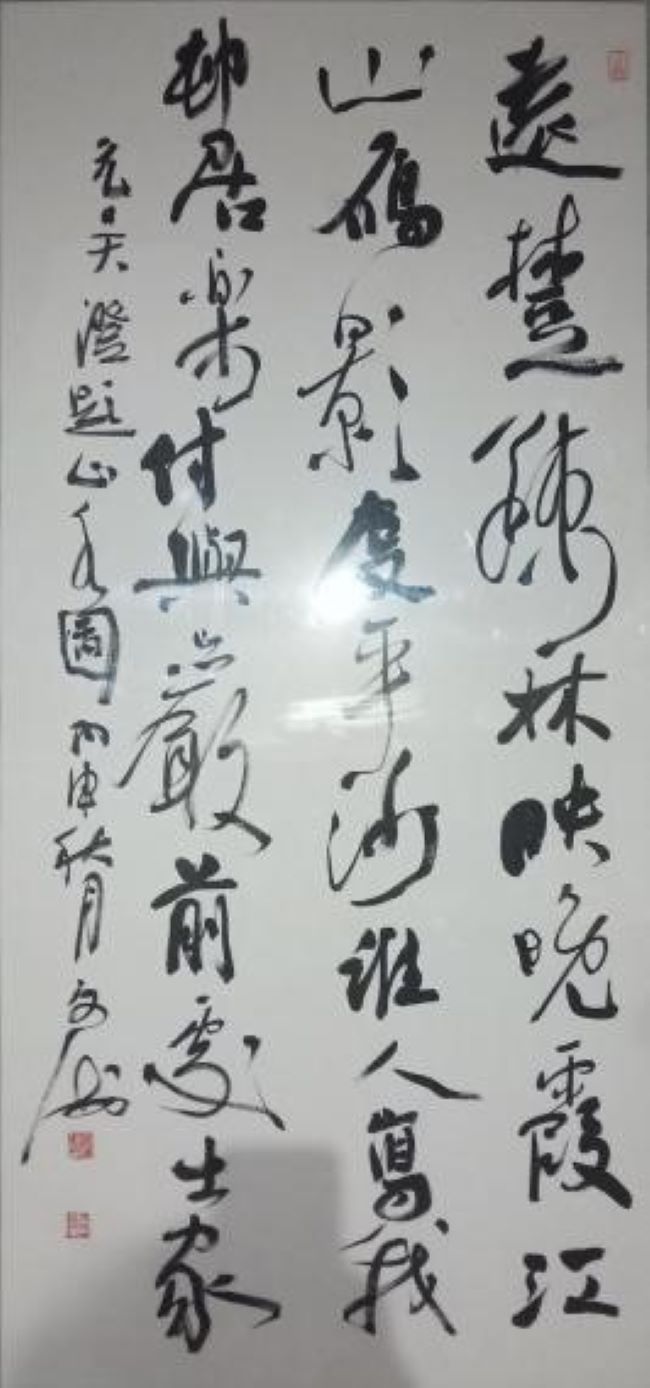 遠樹疎林映晚霞江
山鴈影度平沙誰人寫我
邨居樂付與巖前處士家
元吴澄題山水圖丙申秋月文